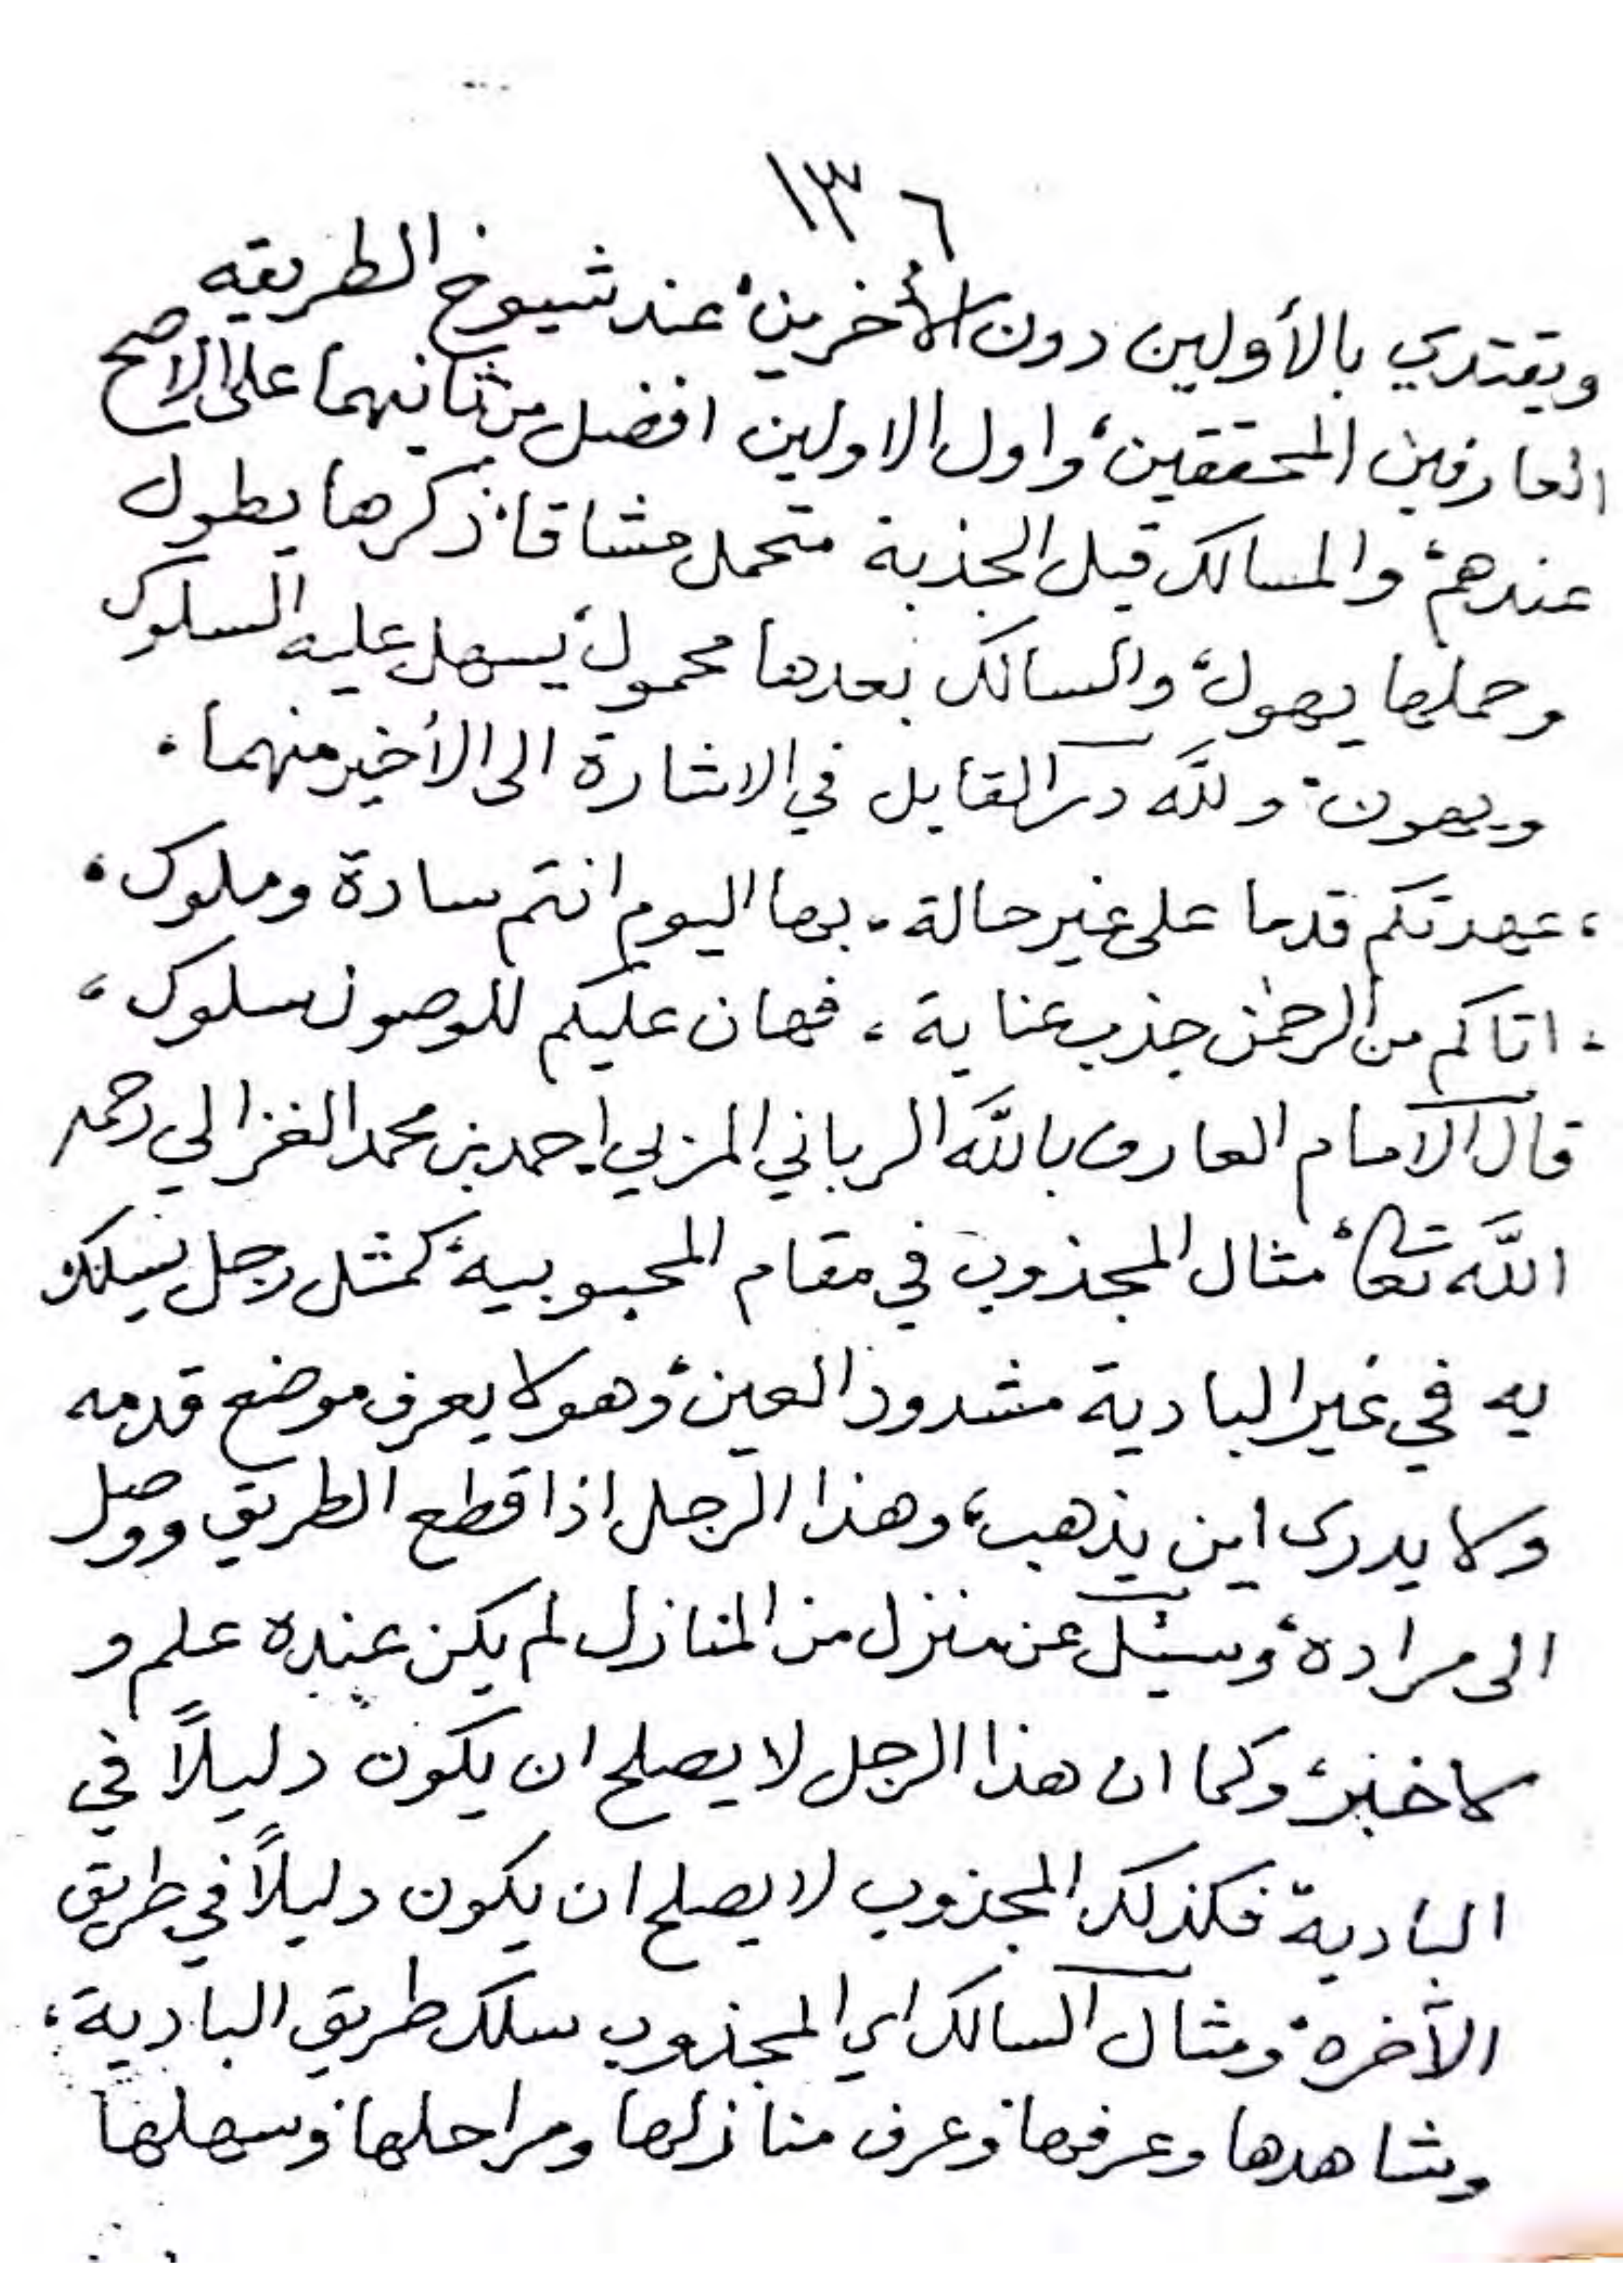 ١٣٦
ويقتدي بالأولين دون الأخرين، عند شيوخ الطريقه
العارفين المحققين، واول الاولين افضل من ثانيهما على الاصح
عندهم، والسالك قبل الجذبة متحمل مشاقا، ذكرها يطول
وحملها يهول، والسالك بعدها محمول، يسهل عليه السلوك
ويهون، ولله در القايل في الاشارة الى الأخير منهما،
، عهدتكم قدما على غير حالة، بها اليوم انتم سادة وملوك،
، اتاكم من الرحمٰن جذب عناية، فهان عليكم للوصول سلوك،
قال الامام العارف بالله الرباني المزبي احمد بن محمد الغزالي رحمه
الله تعالى، مثال المجذوب في مقام المحبوبية، كمثل رجل يسلك
به في غير البادية مشدود العين، وهو لا يعرف موضع قدمه
ولا يدرى اين يذهب، وهذا الرجل اذا قطع الطريق ووصل
الى مراده، وسئل عن منزل من المنازل لم يكن عنده علم و
لا خبر، وكما ان هذا الرجل لا يصلح ان يكون دليلاً في
البادية فكذلك المجذوب لا يصلح ان يكون دليلاً في طريق
الآخره، ومثال السالك اي المجذوب سلك طريق البادية،
وشاهدها وعرفها، وعرف منازلها ومراحلها، وسهلها